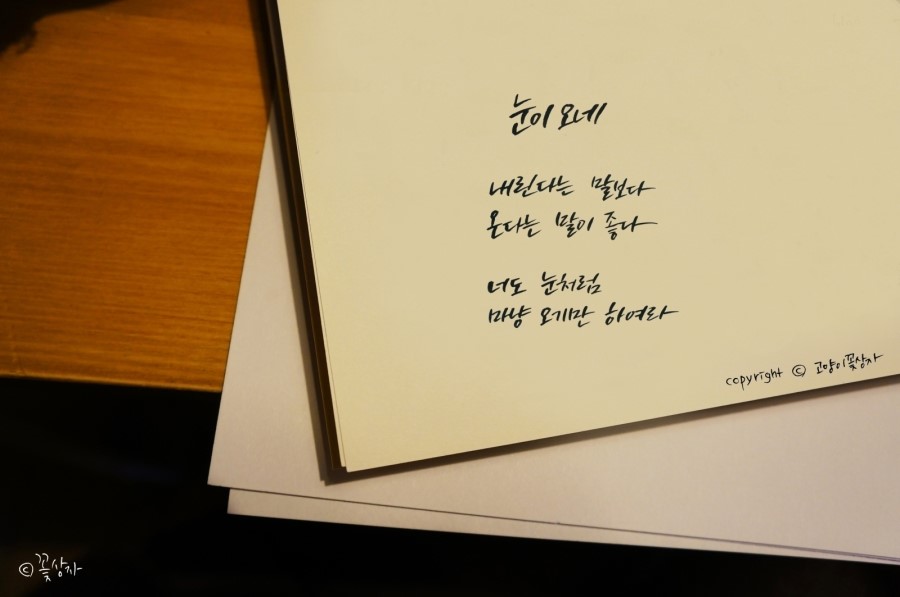 눈이 오네
내린다는 말보다
온다는 말이 좋다
너도 눈처럼
마냥 오기만 하여라
copyright © 고양이꽃상자
© 꽃상자